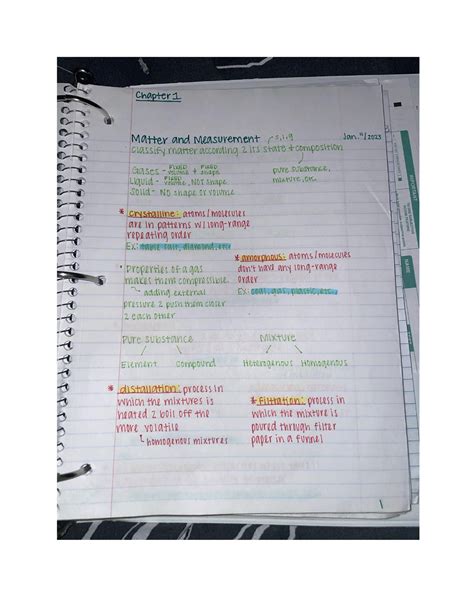 Chapter 1
Matter and Measurement → s, l, g
Jan. 9/2023
Classify matter according 2 its state + composition
Gases - FIXED volume + FIXED shape
pure substance,
Liquid - FIXED volume, NOT shape
mixture, etc.
Solid - NO shape or volume
* crystalline: atoms/molecules
are in patterns w/ long-range
repeating order
Ex: table salt, diamond, etc
* amorphous: atoms/molecules
don't have any long-range
order
Ex: coal, gas, plastic, etc.
Properties of a gas
makes them compressible.
↳ adding external
pressure 2 push them closer
2 each other
Pure Substance
Mixture
Element
Compound
Heterogenous
Homogenous
* distallation: process in
which the mixtures is
heated 2 boil off the
more volatile
↳ homogenous mixtures
* filtration: process in
which the mixture is
poured through filter
paper in a funnel
1